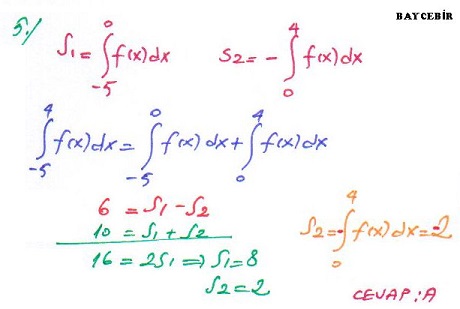 BAYCEBİR
5./ S₁ = ∫₋₅⁰ f(x)dx S₂ = - ∫₀⁴ f(x)dx
∫₋₅⁴ f(x)dx = ∫₋₅⁰ f(x)dx + ∫₀⁴ f(x)dx
6 = S₁ - S₂
10 = S₁ + S₂
16 = 2S₁ ⇒ S₁ = 8
S₂ = 2
S₂ = -∫₀⁴ f(x)dx = -2
CEVAP: A